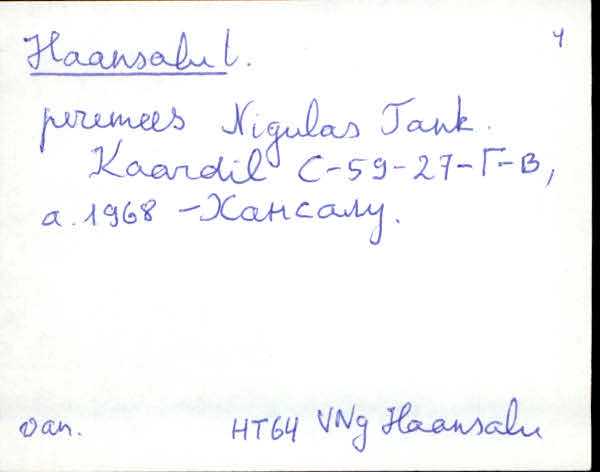 Haansalu t. 4
peremees Nigulas Tank.
Kaardil С-59-27-Г-В,
a. 1968 – Хансалу.
van. HT64 VNg Haansalu